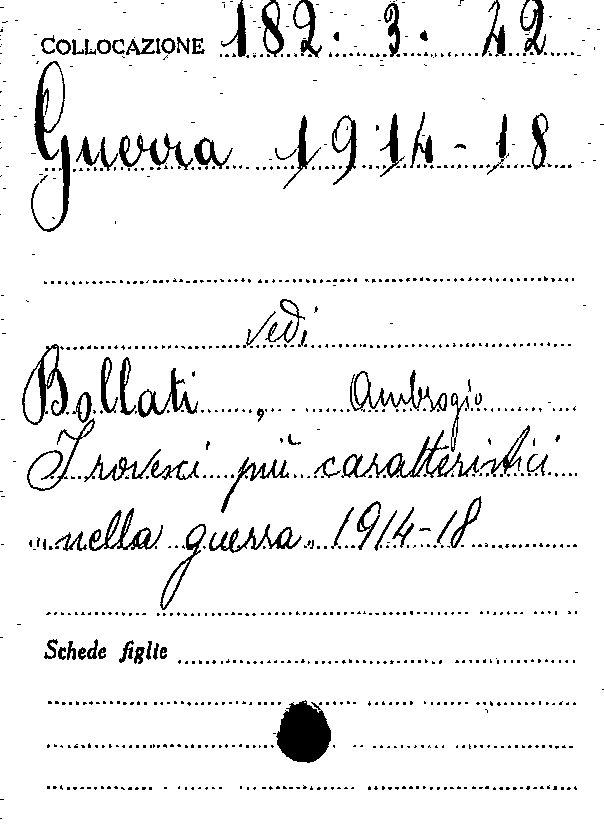 COLLOCAZIONE 182. 3. 42
Guerra 1914-18
vedi
Bollati, Ambrogio
I rovesci più caratteristici
nella guerra 1914-18
Schede figlie